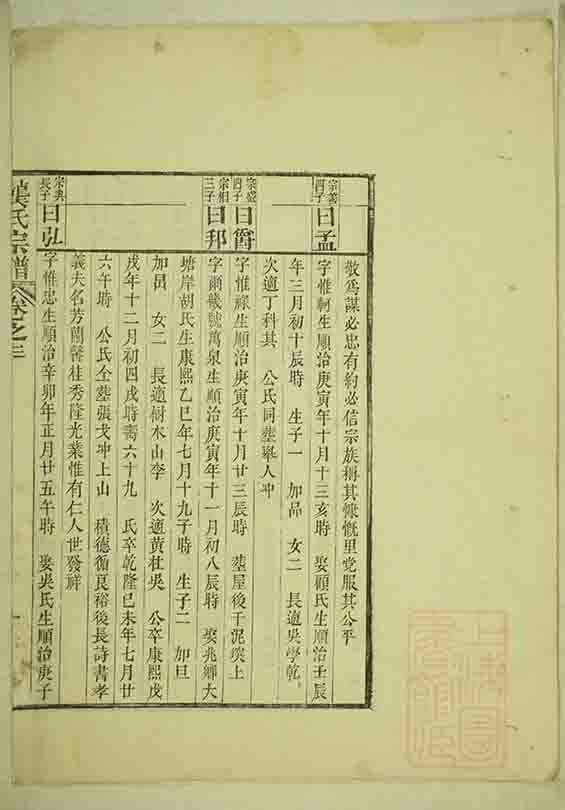 敬爲謀必忠有約必信宗族稱其慷慨里党服其公平
宗善四子曰孟
字惟軻生順治庚寅年十月十三亥時 娶顧氏生順治壬辰
年三月初十辰時 生子一 加品 女二 長適吳學乾
次適丁科其 公氏同塟畢人冲
宗盛四子曰爵
字惟祿生順治庚寅年十月廿三辰時 塟屋後干泥塽上
宗相三子曰邦
字爾畿號萬泉生順治庚寅年十一月初八辰時 娶兆鄉大
塘岸胡氏生康熙乙巳年七月十九子時 生子二 加旦
加昌 女二 長適樹木山李 次適黃杜吳 公卒康熙戊
戌年十二月初四戌時壽六十九 氏卒乾隆已未年七月廿
六午時 公氏仝塟張戈冲上山 積德循良裕後長詩書孝
義夫名芳蘭馨桂秀隆光業惟有仁人世發祥
宗典長子曰弘
字惟忠生順治辛卯年正月廿五午時 娶吳氏生順治庚子
龔氏宗譜 卷之三